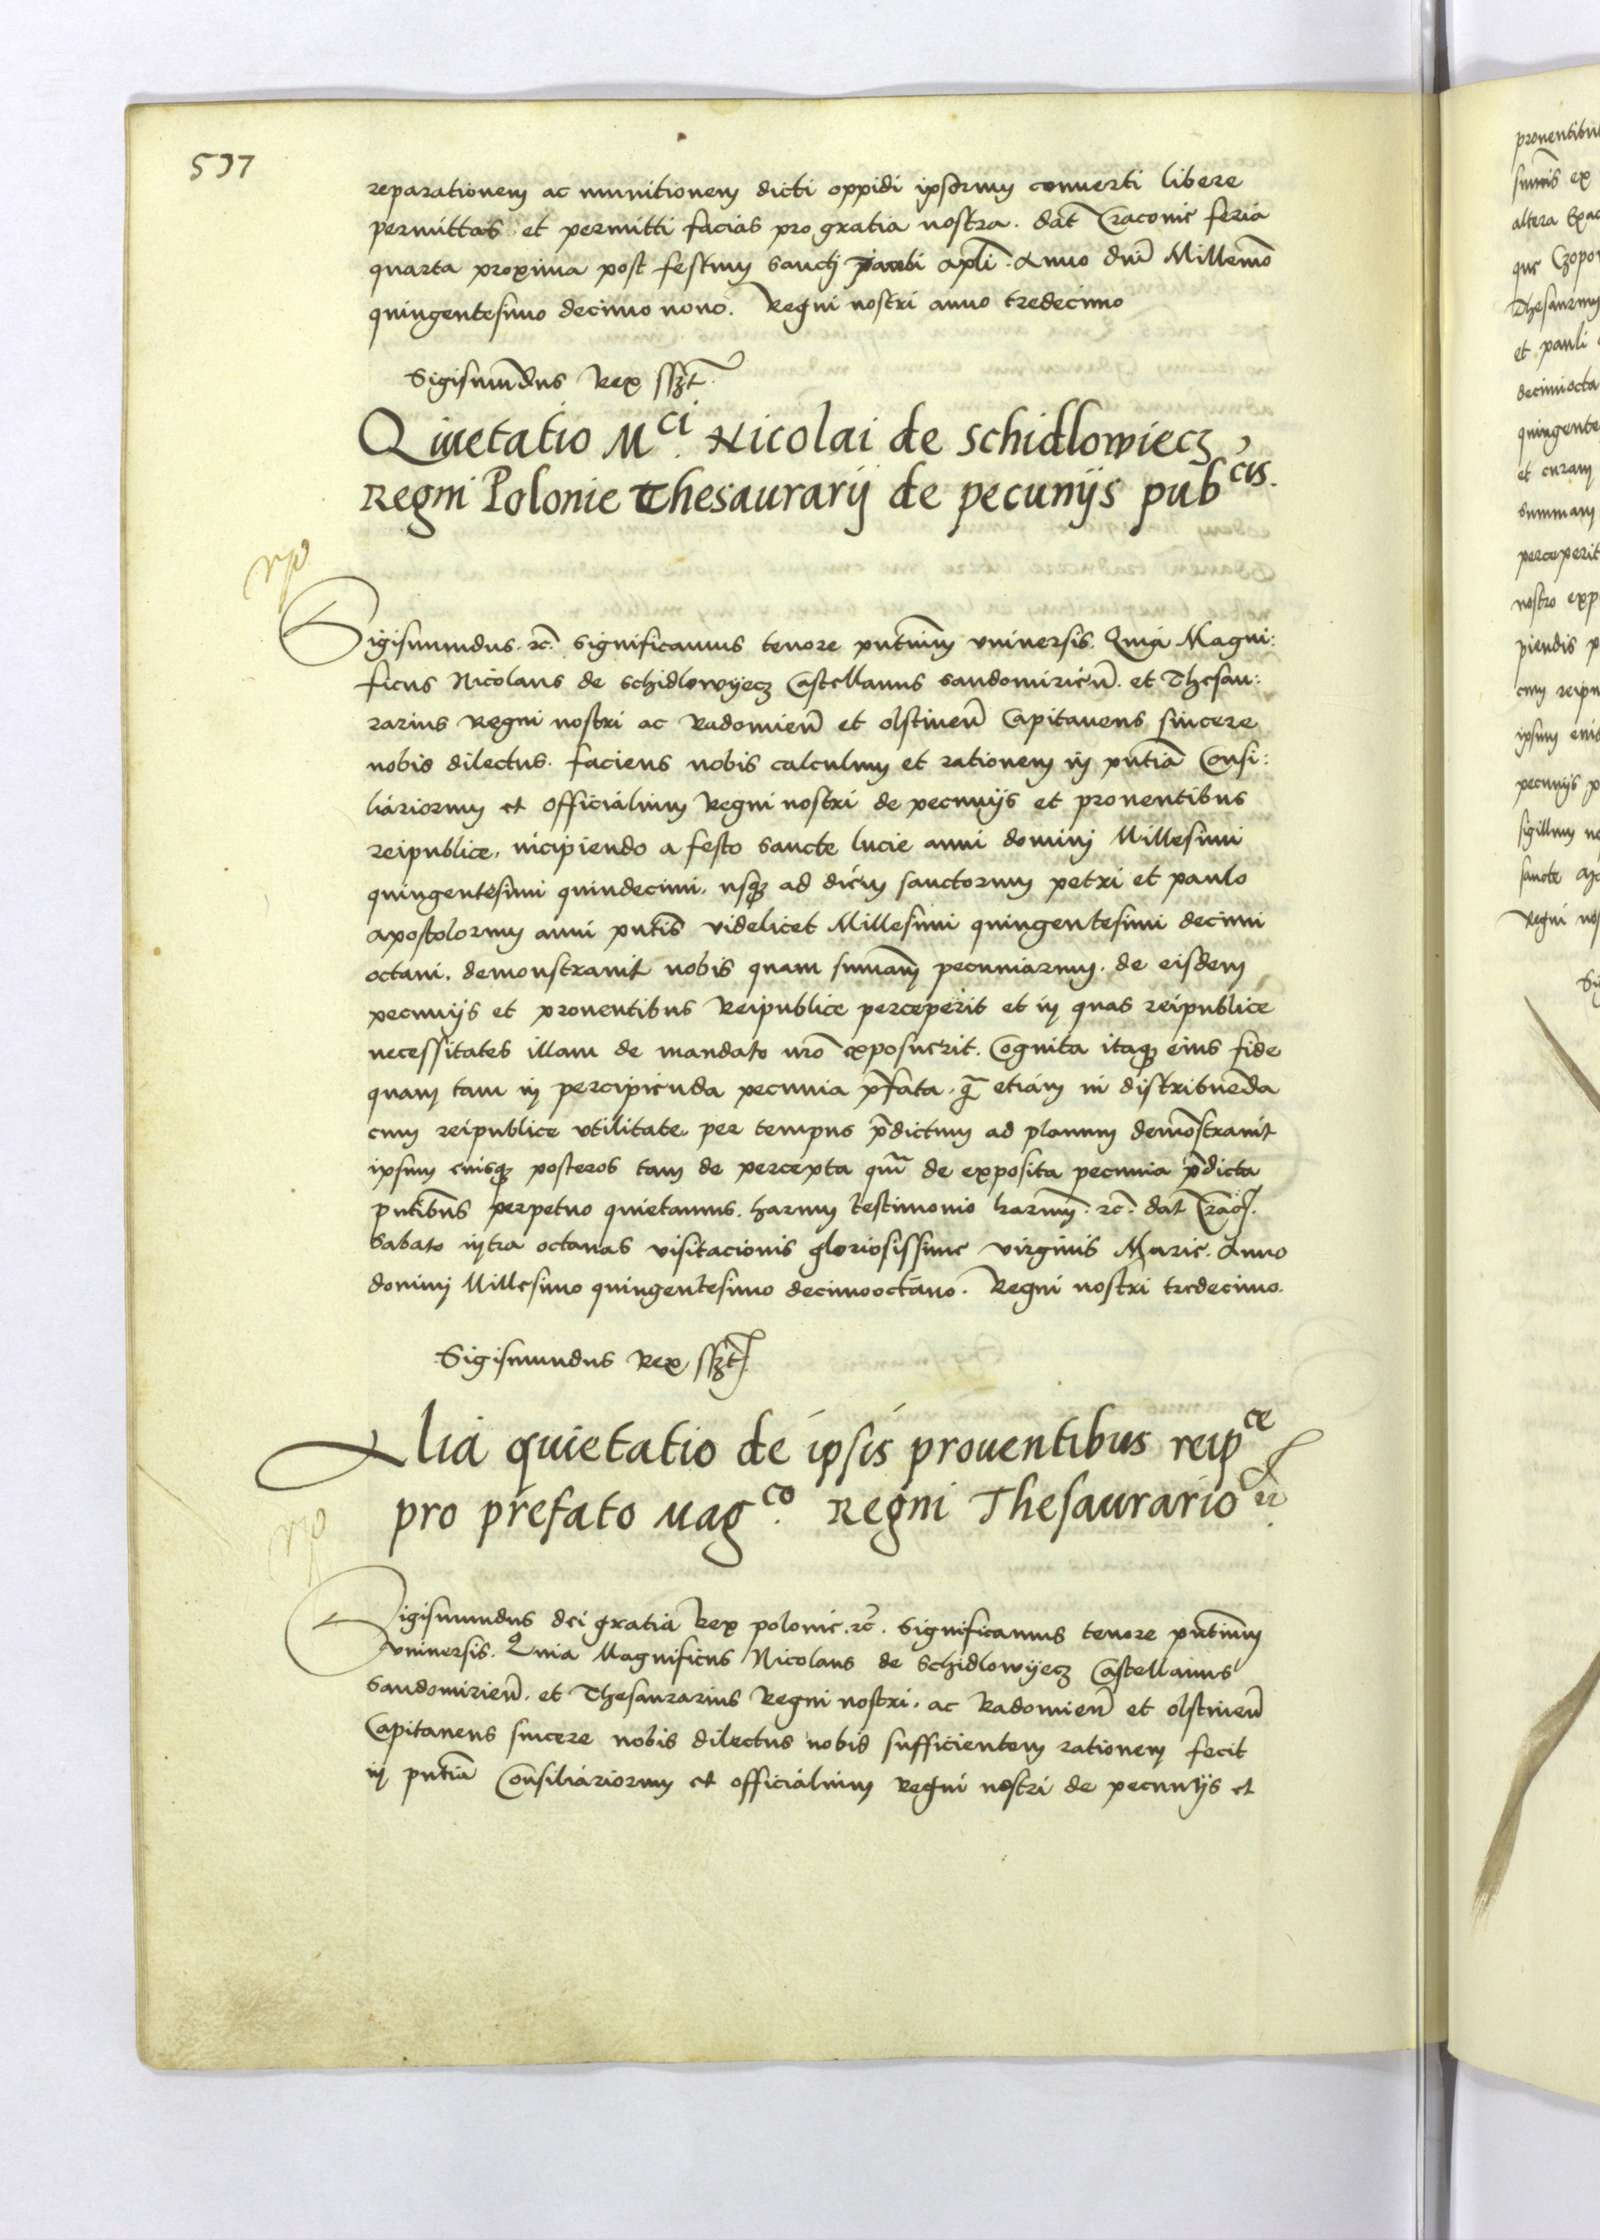 537
reparationem ac munitionem dicti oppidi ipsorum conuerti libere
permittas et permitti facias pro gratia nostra. dat Craconie feria
quarta proxima post festum sancti Jacobi apli. Anno dni Millemo
quingentesimo decimo nono. Regni nostri anno tredecimo
Sigismundus Rex sszt.
Quietatio M.ci Nicolai de Schidlowiecz,
Regni Polonie Thesaurarij de pecunijs pubcis.
Sigismundus. rc. significamus tenore pntium vniuersis. Quia Magni:
ficus Nicolaus de Schidlowyecz Castellanus Sandomirien. et Thesau:
rarius Regni nostri ac Radomien et olstinen Capitaneus sincere
nobis dilectus. faciens nobis calculum et rationem in pntia Consi:
liariorum et officialium Regni nostri de pecunijs et prouentibus
reipublice, incipiendo a festo sancte lucie anni domini Millesimi
quingentesimi quindecimi. usq ad diem sanctorum petri et paulo
apostolorum anni pntis videlicet Millesimi quingentesimi decimi
octaui. demonstrauit nobis quam sumam pecuniarum. de eisdem
pecunijs et prouentibus Reipublice perceperit et in quas reipublice
necessitates illam de mandato nro exposuerit. Cognita itaq eius fide
quam tam in percipienda pecunia pfata. q etiam in distribuenda
cum reipublice vtilitate per tempus pdictum ad planum demostrauit
ipsum eiusq posteros tam de percepta qm de exposita pecunia pdicta
pntibus perpetuo quietamus. harum testimonio lrarum. rc. dat Crac.
Sabato intra octauas visitacionis gloriosissime virginis Marie. Anno
domini Millesimo quingentesimo decimooctauo. Regni nostri tredecimo.
Sigismundus Rex sszt.
Alia quietatio de ipsis prouentibus reipce
pro prefato Mag.co Regni Thesaurario
Sigismundus dei gratia Rex polonie. rc. significamus tenore pntium
vniuersis. Quia Magnificus Nicolaus de Schidlowyecz Castellanus
Sandomirien. et Thesaurarius Regni nostri. ac Radomien et olstinen
Capitaneus sincere nobis dilectus nobis sufficientem rationem fecit
in pntia Consiliariorum et officialium Regni nostri de pecunijs et